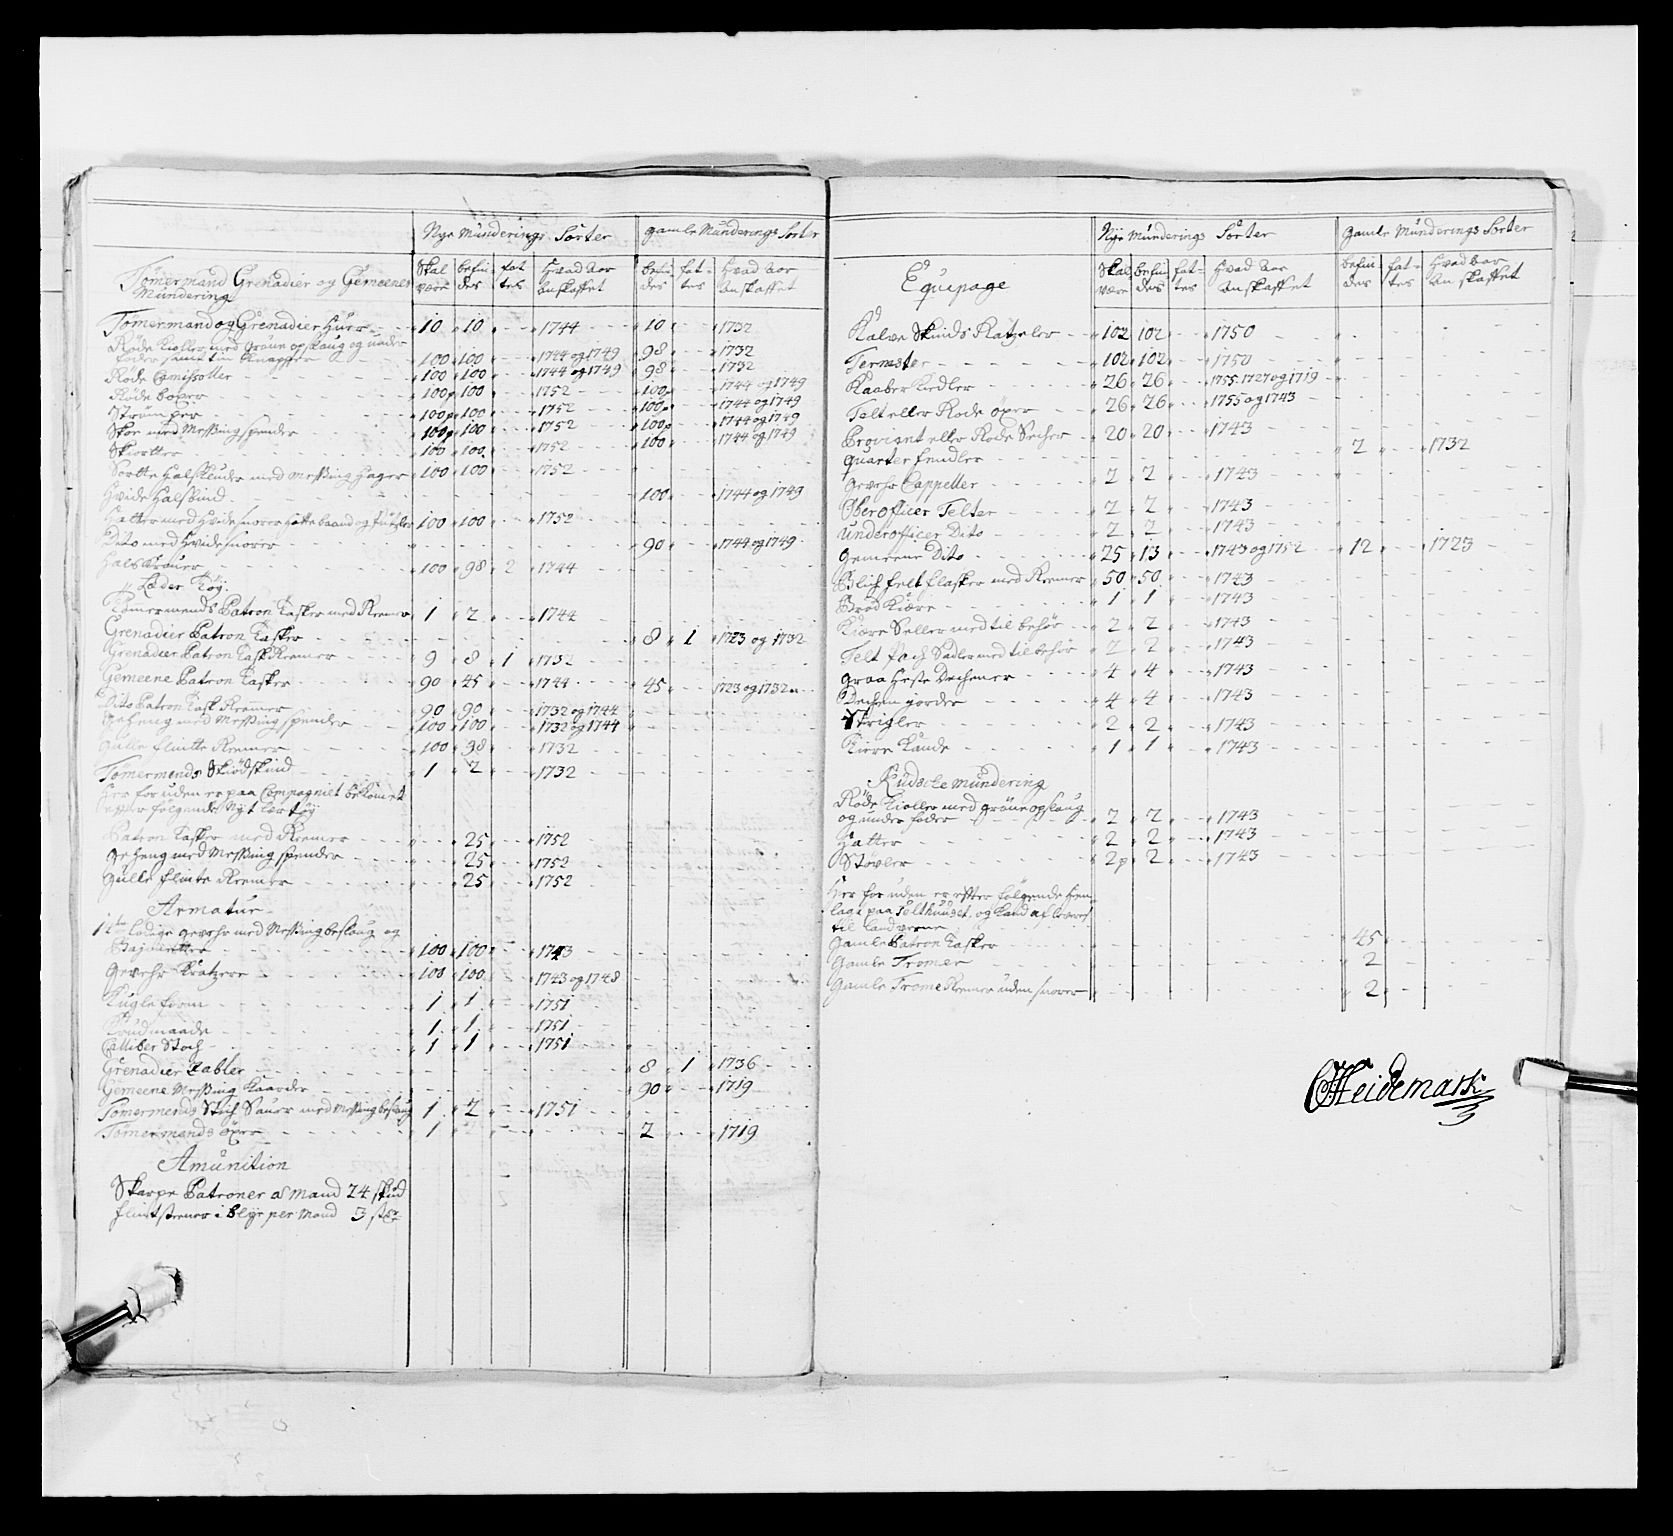 Nye Munderings Sorter gamle Munderings Sorter
Tømermand Grenadier og Gemeenes Mundering
Skal være befindes fattes Hvad Aar anskaffet befindes fattes Hvad Aar anskaffet
Tømermand og Grenadier Huer 10 10 1744 10 1732
Røde Kioller med grøne opslaug og under
foder samt tin Knapper 100 100 1744 og 1749 98 1732
Røde Camissoller 100 100 1744 og 1749 98 1732
Røde boxer 100p 100 1752 100p 1744 og 1749
Strømper 100p 100 1752 100p 1744 og 1749
Skoe med Messing spender 100p 100 1752 100p 1744 og 1749
Skiorter 100 100 1752 100 1744 og 1749
Sorte Halsklude med Messing Hager 100 100 1752
Hvide Halsbind 100 1744 og 1749
Hatter med Hvide snorer Hatte baand og 100 100 1752
Dito med Hvide snorer 90 1744 og 1749
Hals Kraver 100 98 2 1744
Læder Tøy
Tømermends Patron Tasker med Remer 1 2 1744
Grenadier Patron Tasker 8 1 1723 og 1732
Grenadier Patron Task Remer 9 8 1 1732
Gemeene Patron Tasker 90 45 1744 45 1723 og 1732
Dito Patron Task Remer 90 90 1732 og 1744
geheng med Messing spender 100 100 1732 og 1744
gulle flintte Remer 100 98 1732
Tømermends Skiødskind 1 2 1732
Her foruden er paa Compagniet bekomet
efter følgende Nyt lærtøy
Patron Tasker med Remer 25 1752
geheng med Messing spender 25 1752
gulle flinte Remer 25 1752
Armatur
lodige gevehr med Messing beslaug og
Bajonetter 100 100 1743
gevehr Kratzere 100 100 1743 og 1748
Kugle form 1 1 1751
Krudmaade 1 1 1751
Calliber Stock 1 1 1751
Grenadier Zabler 8 1 1736
Gemeene Messing Kaarder 90 1719
Tømermends Stich Sauer med Messing beslaug 1 2 1751
Tømermends øxer 1 2 2 1719
Amunition
Skarpe Patroner a Mand 24 skud
flintsteener i blye per Mand 3 st
Nye Munderings Sorter gamle Munderings Sorter
Equipage
Skal være befindes fattes Hvad Aar anskaffet befindes fattes Hvad Aar anskaffet
Kalve Skinds Ratzeler 102 102 1750
Termster 102 102 1750
Kaaber Kiedler 26 26 1755. 1727 og 1719
Telt eller Rode øxer 26 26 1755 og 1743
Proviant eller Rode Secher 20 20 1743
quarter fendler 2 1732
gevehr Cappeller 2 2 1743
Ober officer Telter 2 2 1743
Underofficer Dito 2 2 1743
gemeene Dito 25 13 1743 og 1752 12 1723
Blich felt flasker med Remer 50 50 1743
Brød Kiære 1 1 1743
Kiøre Seller med tilbehør 2 2 1743
Telt Pach Sadler med tilbehør 2 2 1743
graa Heste Dechener 4 4 1743
Dechen giorder 4 4 1743
Strigler 2 2 1743
Kiøre Kaade 1 1 1743
Kudske Mundering
Røde Kioller med grøne opslaug
og under foder 2 2 1743
Hatter 2 2 1743
Støvler 2p 2 1743
Her foruden er efter følgende hen
lagt paa Telthuuset, og Kand afleveres
til landverne
Gamle Patron Tasker 45
Gamle Tromer 2
Gamle Trome Remer uden snorer 2
CHeidemark